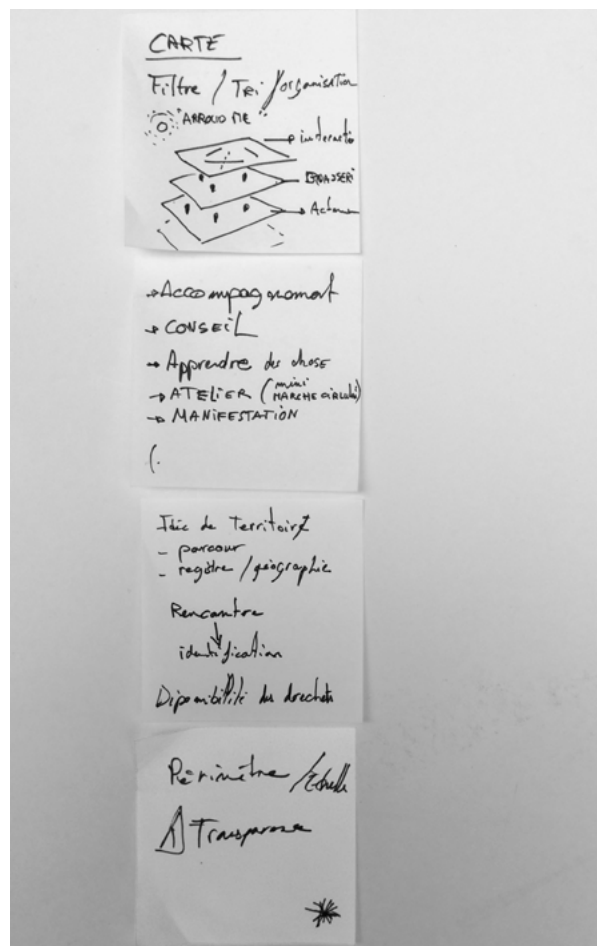 CARTE
Filtre / Tri / organisation
"AROUND ME"
→ interactio
→ BRASSERi
→ Acteur
→ Accompagnement
→ CONSEIL
→ Apprendre des chose
→ ATELIER (mini MARCHE CIRCULAI)
→ MANIFESTATION
(.
Idée de Territoire
- parcour
- registre / géographie
Rencontre
↓
identification
Diponibilité du drechets
Périmètre / Echelle
Transparence